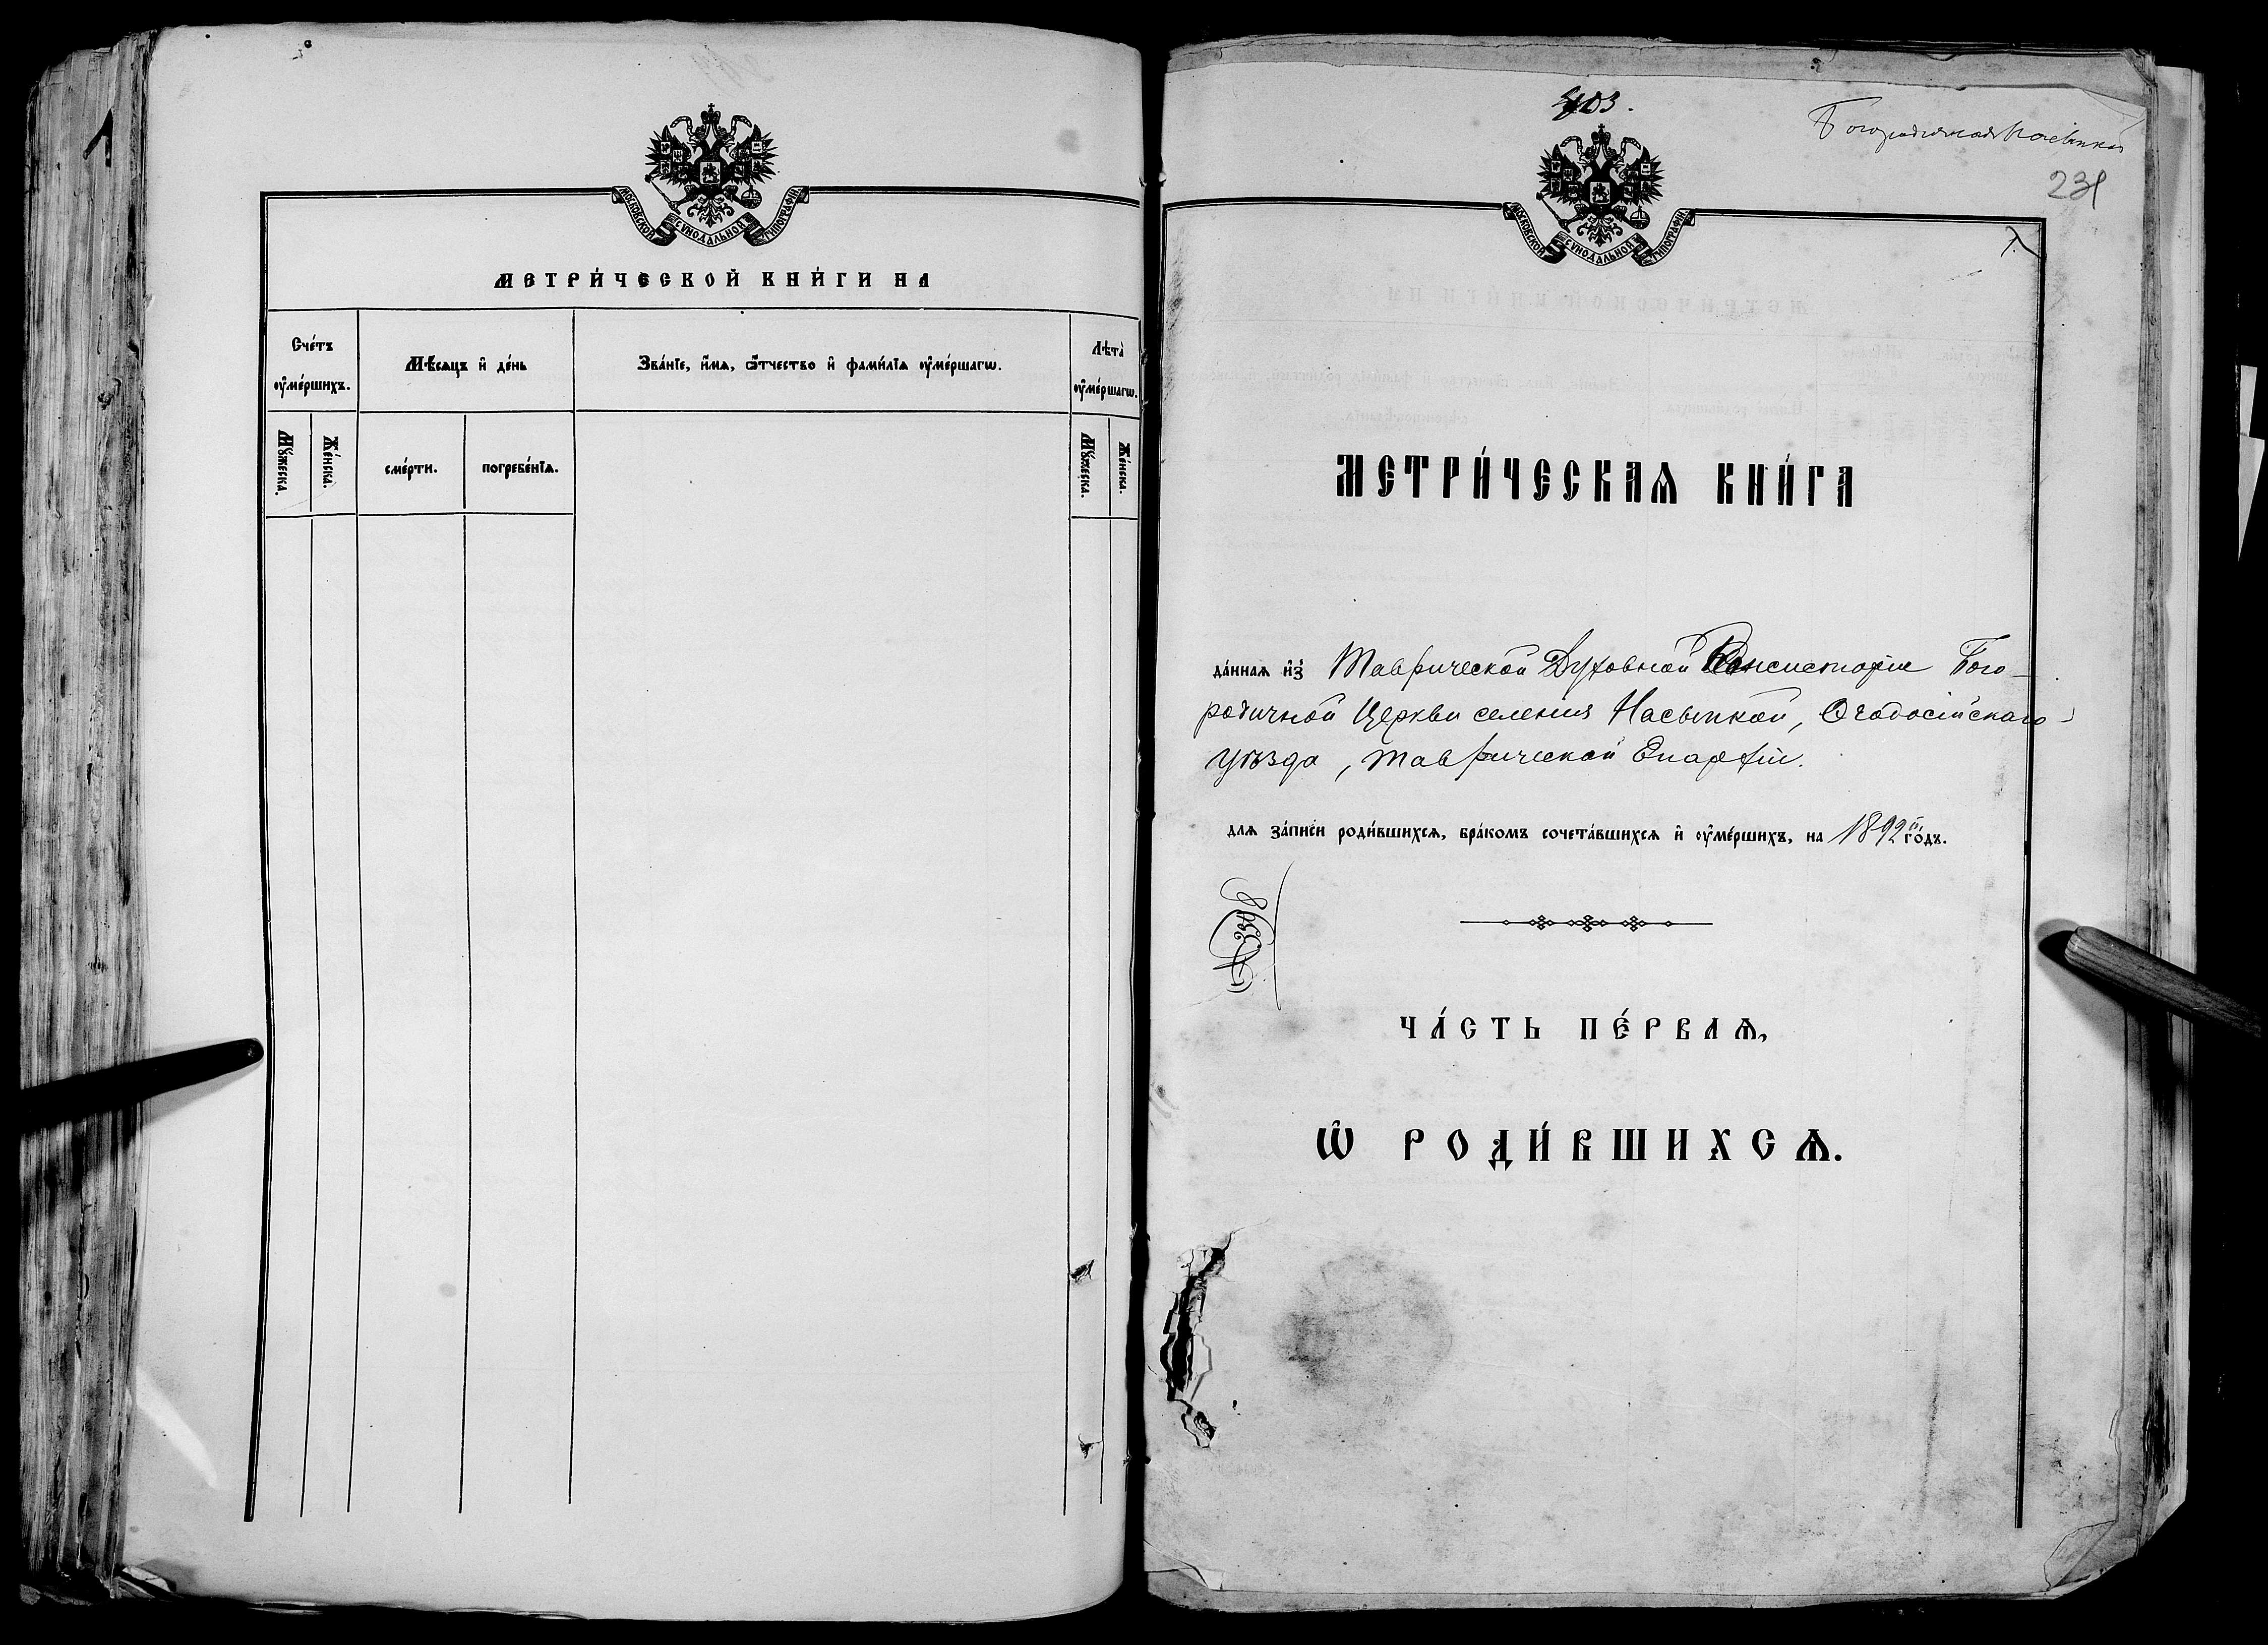 МОСКОВСКОЙ СѴНОДАЛЬНОЙ ТИПОГРАФІИ
МЕТРИ́ЧЕСКОЙ КНИ́ГИ НА
Сче́тъ оу҆ме́ршихъ.
Мѣ́сяцъ и҆ де́нь
Зва́нїе, и҆́мѧ, ѻ҆́тчество и҆ фами́лїѧ оу҆ме́ршагѡ.
Лѣта̀ оу҆ме́ршагѡ.
Мꙋ́жеска.
Же́нска.
сме́рти.
погребе́нїѧ.
Мꙋ́жеска.
Же́нска.
403.
Богородичная Насыпкой
231
МОСКОВСКОЙ СѴНОДАЛЬНОЙ ТИПОГРАФІИ
1.
МЕТРИ́ЧЕСКАѦ КНИ́ГА
да́ннаѧ и҆з̾ Таврической Духовной Консисторіи Бого-
родичной Церкви селенія Насыпкой, Ѳеодосійскаго
уѣзда, Таврической Епархіи.
длѧ за́писи роди́вшихсѧ, бра́комъ сочета́вшихсѧ и҆ оу҆ме́ршихъ, на 1892й го́дъ.
ЧА́СТЬ ПЕ́РВАѦ,
Ѡ҆ РОДИ́ВШИХСѦ.